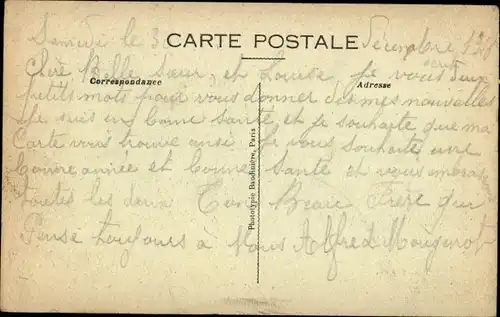 CARTE POSTALE
Samedi le 30 Décembre
Chère Belle Sœur, et Louise, je vous deux
Correspondance
Adresse
petits mots pour vous donner des mes nouvelles
Je suis en bonne santé et je souhaite que ma
Carte vous trouve ausi Je vous souhaite une
bonne année et bonne santé et vous embras
toutes les deux Ton Beau Frère qui
Pense toujours à Vous Alfred Mougenot
Phototypie Baudinière, Paris